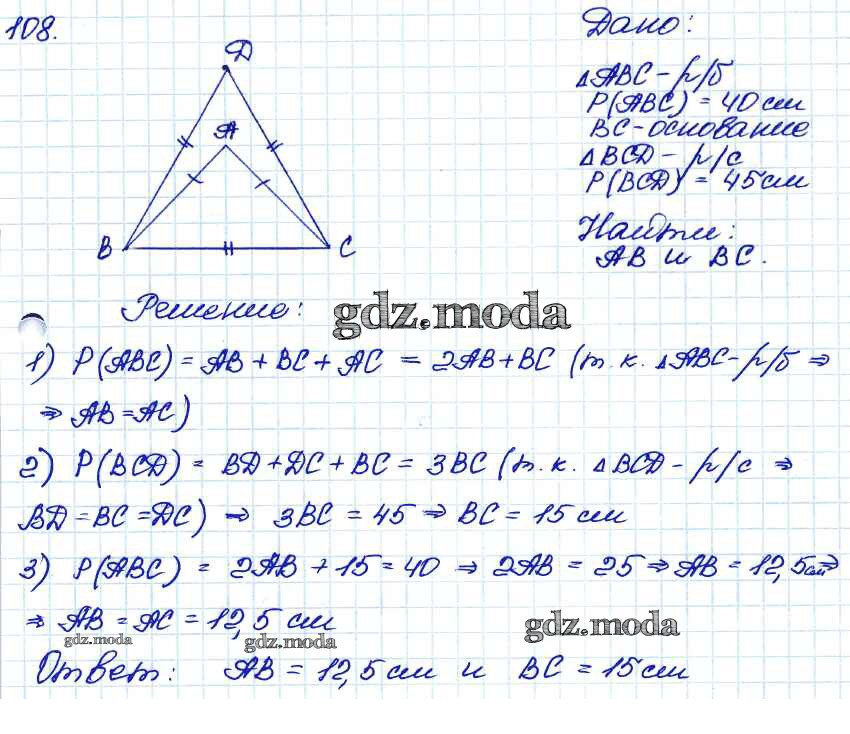 108.
Дано:
D
△ABC – р/б
P(ABC) = 40 см
A
BC – основание
△BCD – р/с
P(BCD) = 45 см
Найти:
B
C
AB и BC.
Решение:
gdz.moda
1) P(ABC) = AB + BC + AC = 2AB + BC (т. к. △ABC – р/б ⇒
⇒ AB = AC)
2) P(BCD) = BD + DC + BC = 3BC (т. к. △BCD – р/с ⇒
BD = BC = DC) ⇒ 3BC = 45 ⇒ BC = 15 см
3) P(ABC) = 2AB + 15 = 40 ⇒ 2AB = 25 ⇒ AB = 12,5см ⇒
⇒ AB = AC = 12,5 см
gdz.moda
gdz.moda
gdz.moda
Ответ: AB = 12,5 см и BC = 15 см